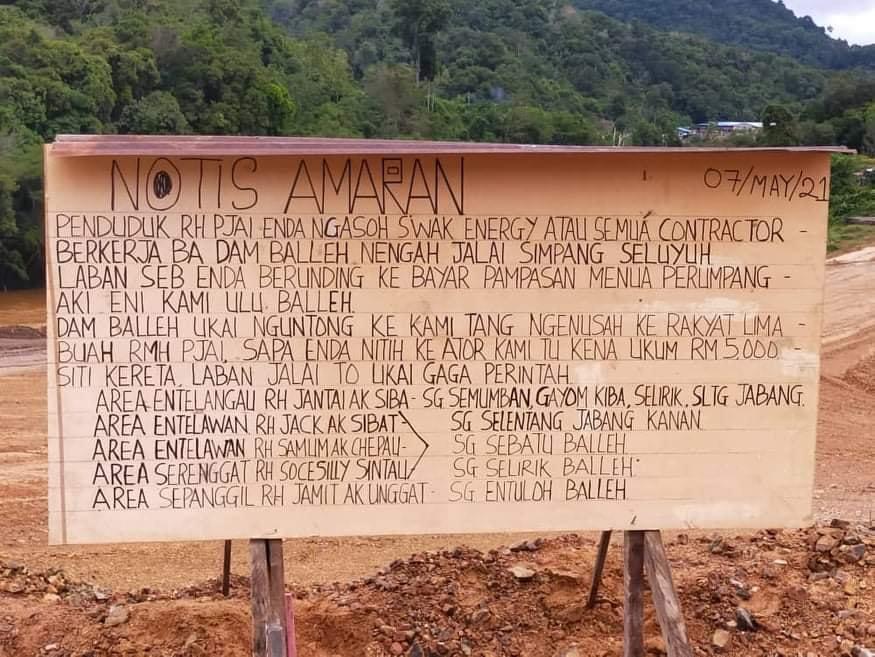 NOTIS AMARAN
07/MAY/21
PENDUDUK RH PJAI ENDA NGASOH S'WAK ENERGY ATAU SEMUA CONTRACTOR -
BERKERJA BA DAM BALLEH NENGAH JALAI SIMPANG SELUYUH
LABAN SEB ENDA BERUNDING KE BAYAR PAMPASAN MENUA PERUMPANG -
AKI ENI KAMI ULU BALLEH.
DAM BALLEH UKAI NGUNTONG KE KAMI TANG NGENUSAH KE RAKYAT LIMA -
BUAH RMH PJAI. SAPA ENDA NITIH KE ATOR KAMI TU KENA UKUM RM 5,000 -
SITI KERETA. LABAN JALAI TO UKAI GAGA PERINTAH.
AREA ENTELANGAU RH JANTAI AK SIBA - SG SEMUMBAN, GAYOM KIBA, SELIRIK, SLTG JABANG.
AREA ENTELAWAN RH JACK AK SIBAT - SG SELENTANG JABANG KANAN
AREA ENTELAWAN RH SAMUM AK CHEPAU - SG SEBATU BALLEH
AREA SERENGGAT RH SOCESILLY SINTAU SG SELIRIK BALLEH.
AREA SEPANGGIL RH JAMIT AK UNGGAT - SG ENTULOH BALLEH